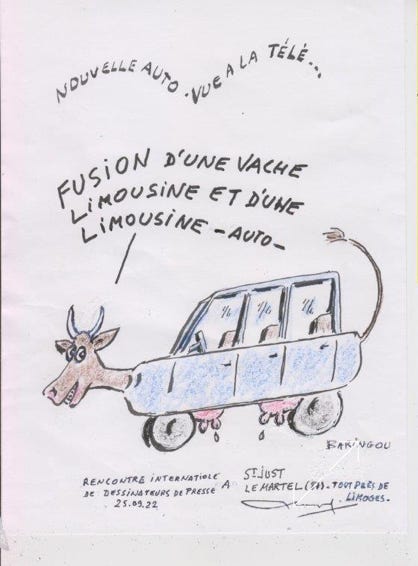 NOUVELLE AUTO . VUE A LA TÉLÉ...
FUSION D'UNE VACHE
LIMOUSINE ET D'UNE
LIMOUSINE - AUTO -
BARINGOU
RENCONTRE INTERNATIOLE A ST JUST
DE DESSINATEURS DE PRESSE LE MARTEL (87). TOUT PRÈS DE
25.09.22 LIMOGES.